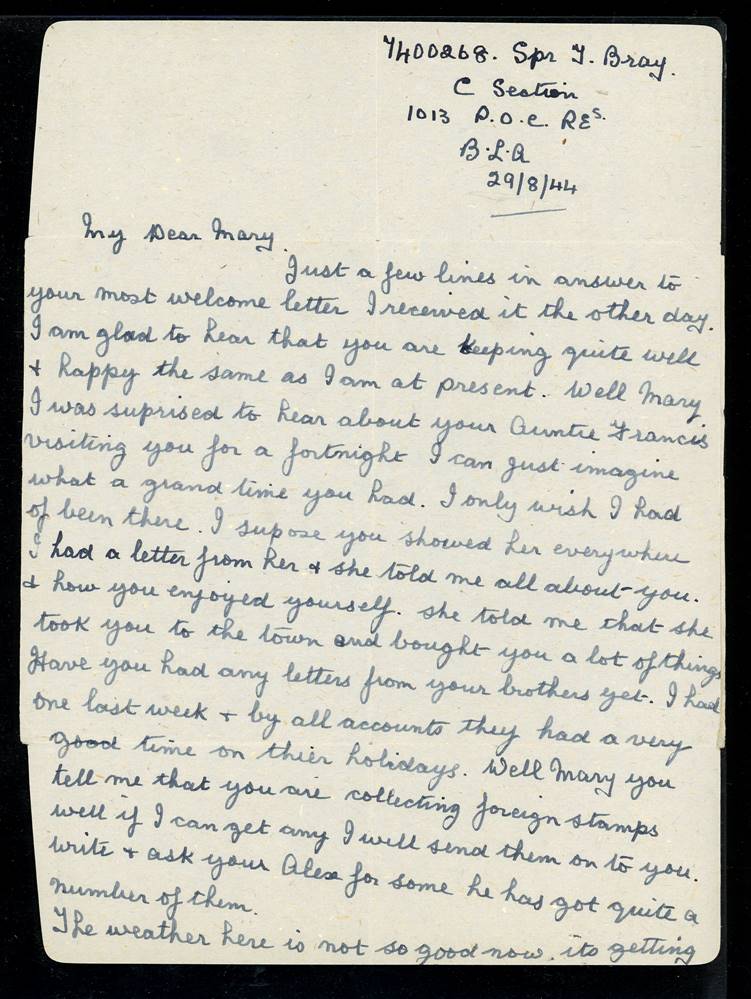 7400268. Spr T. Bray.
C Section
1013 P.O.C. REs.
B.L.A
29/8/44
My Dear Mary.
Just a few lines in answer to
your most welcome letter I received it the other day.
I am glad to hear that you are keeping quite well
& happy the same as I am at present. Well Mary
I was suprised to hear about your Auntie Francis
visiting you for a fortnight I can just imagine
what a grand time you had. I only wish I had
of been there. I supose you showed her everywhere
I had a letter from her & she told me all about you.
& how you enjoyed yourself. she told me that she
took you to the town and bought you a lot of things
Have you had any letters from your brothers yet. I had
one last week & by all accounts they had a very
good time on thier holidays. Well Mary you
tell me that you are collecting foreign stamps
well if I can get any I will send them on to you.
write & ask your Alex for some he has got quite a
number of them.
The weather here is not so good now. its getting